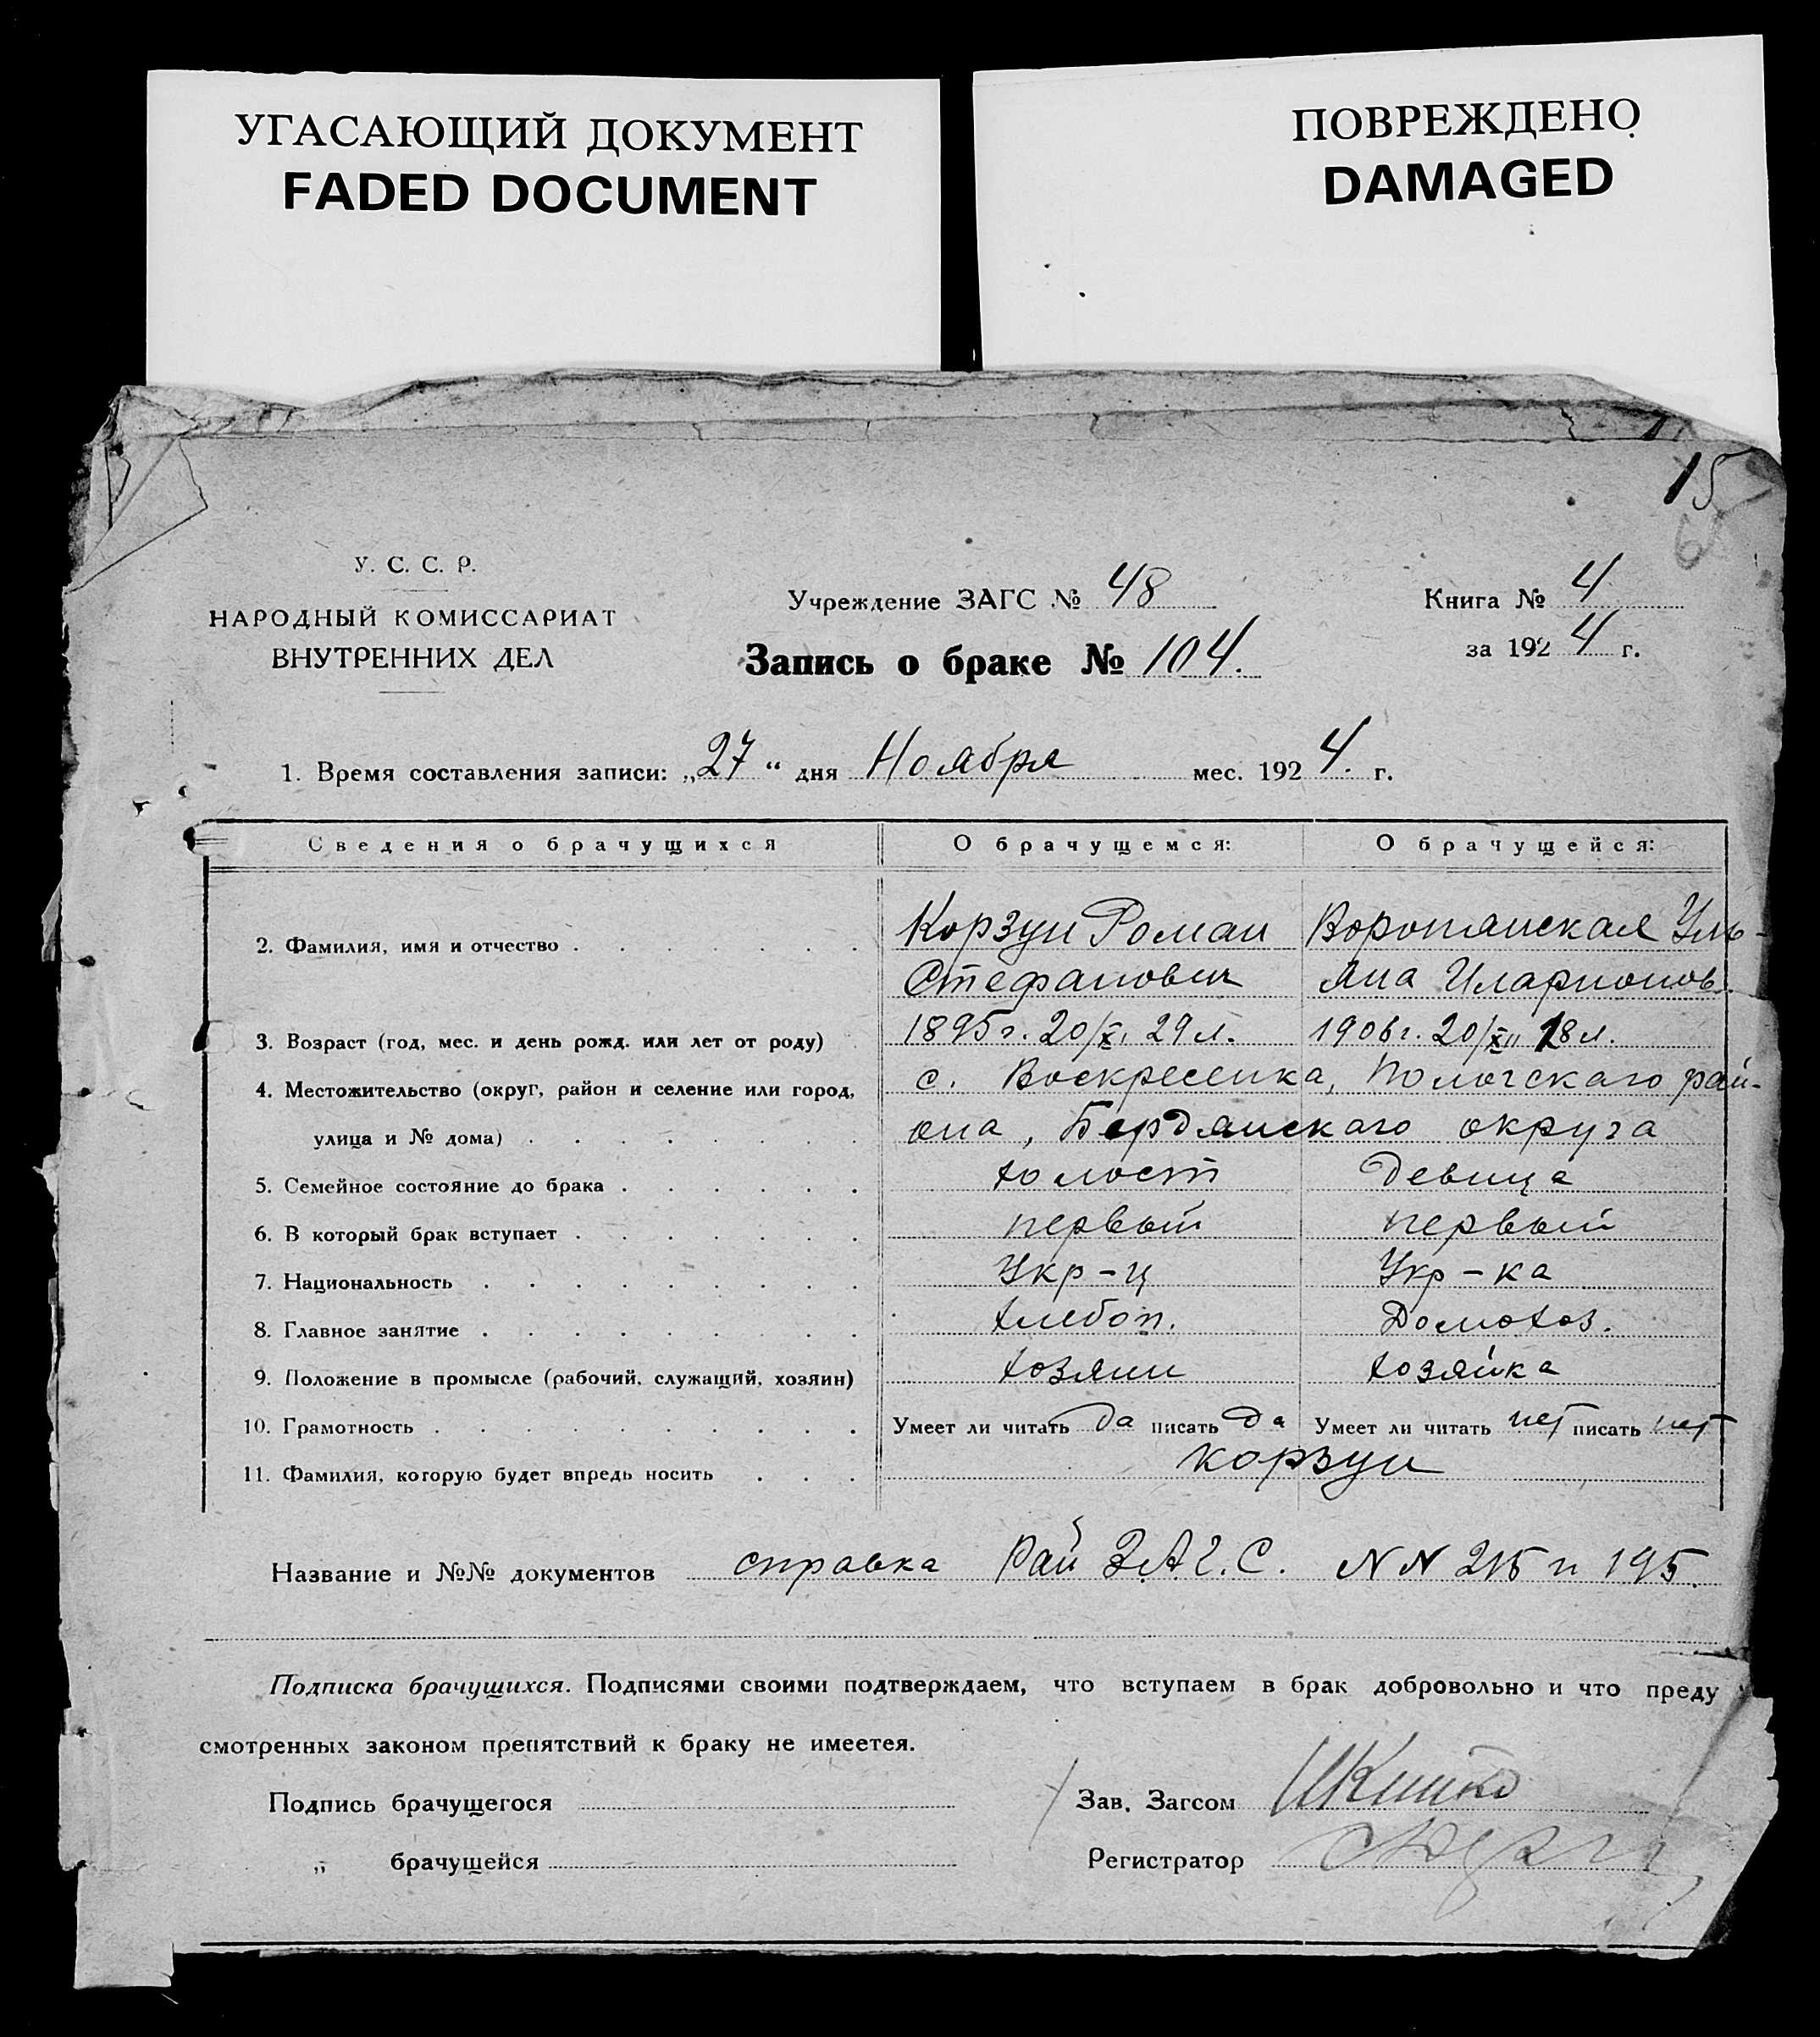 УГАСАЮЩИЙ ДОКУМЕНТ
FADED DOCUMENT
ПОВРЕЖДЕНО
DAMAGED
15
6
У. С. С. Р.
НАРОДНЫЙ КОМИССАРИАТ
ВНУТРЕННИХ ДЕЛ
Учреждение ЗАГС № 48
Запись о браке № 104.
Книга № 4
за 1924 г.
1. Время составления записи: „27“ дня Ноября мес. 1924. г.
Сведения о брачущихся О брачущемся: О брачущейся:
2. Фамилия, имя и отчество Корзун Роман Воротянская Уль-
Стефанович яна Иларионов.
3. Возраст (год, мес. и день рожд. или лет от роду) 1895 г. 20/XI 29 л. 1906 г. 20/XII 18 л.
4. Местожительство (округ, район и селение или город, с. Воскресенка, Пологскаго рай-
улица и № дома) она, Бердянскаго округа
5. Семейное состояние до брака холост девица
6. В который брак вступает первый первый
7. Национальность Укр-ц Укр-ка
8. Главное занятие хлебоп. Домохоз.
9. Положение в промысле (рабочий, служащий, хозяин) хозяин хозяйка
10. Грамотность Умеет ли читать да писать да Умеет ли читать нет писать нет
11. Фамилия, которую будет впредь носить Корзун
Название и №№ документов справка Рай З.А.Г.С. N N 215 и 195.
Подписка брачущихся. Подписями своими подтверждаем, что вступаем в брак добровольно и что преду
смотренных законом препятствий к браку не имеетея.
Подпись брачущегося
Зав. Загсом
„ брачущейся
Регистратор